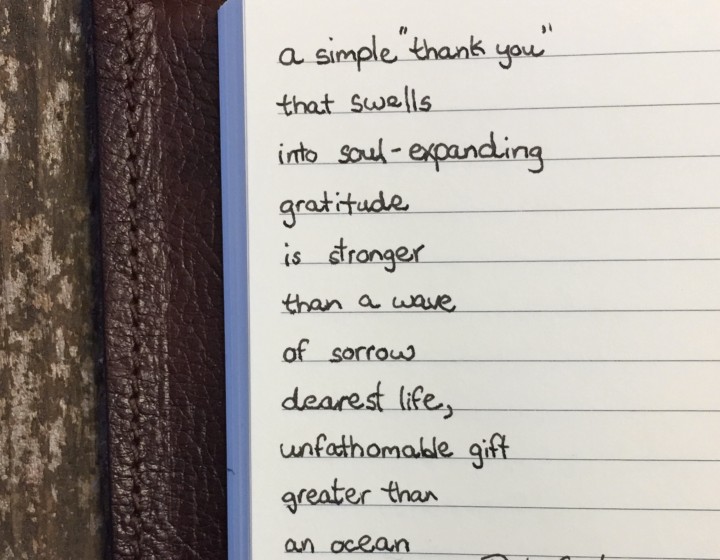 a simple "thank you"
that swells
into soul-expanding
gratitude
is stronger
than a wave
of sorrow
dearest life,
unfathomable gift
greater than
an ocean